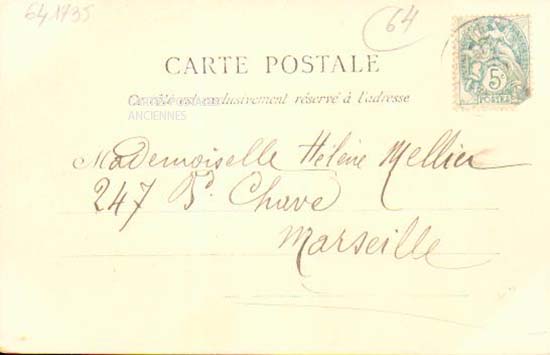 641735
64
CARTE POSTALE
Ce côté est exclusivement réservé à l'adresse
ANCIENNES
5c
POSTES
Mademoiselle Hélène Mellier
247 Bd. Chave
Marseille